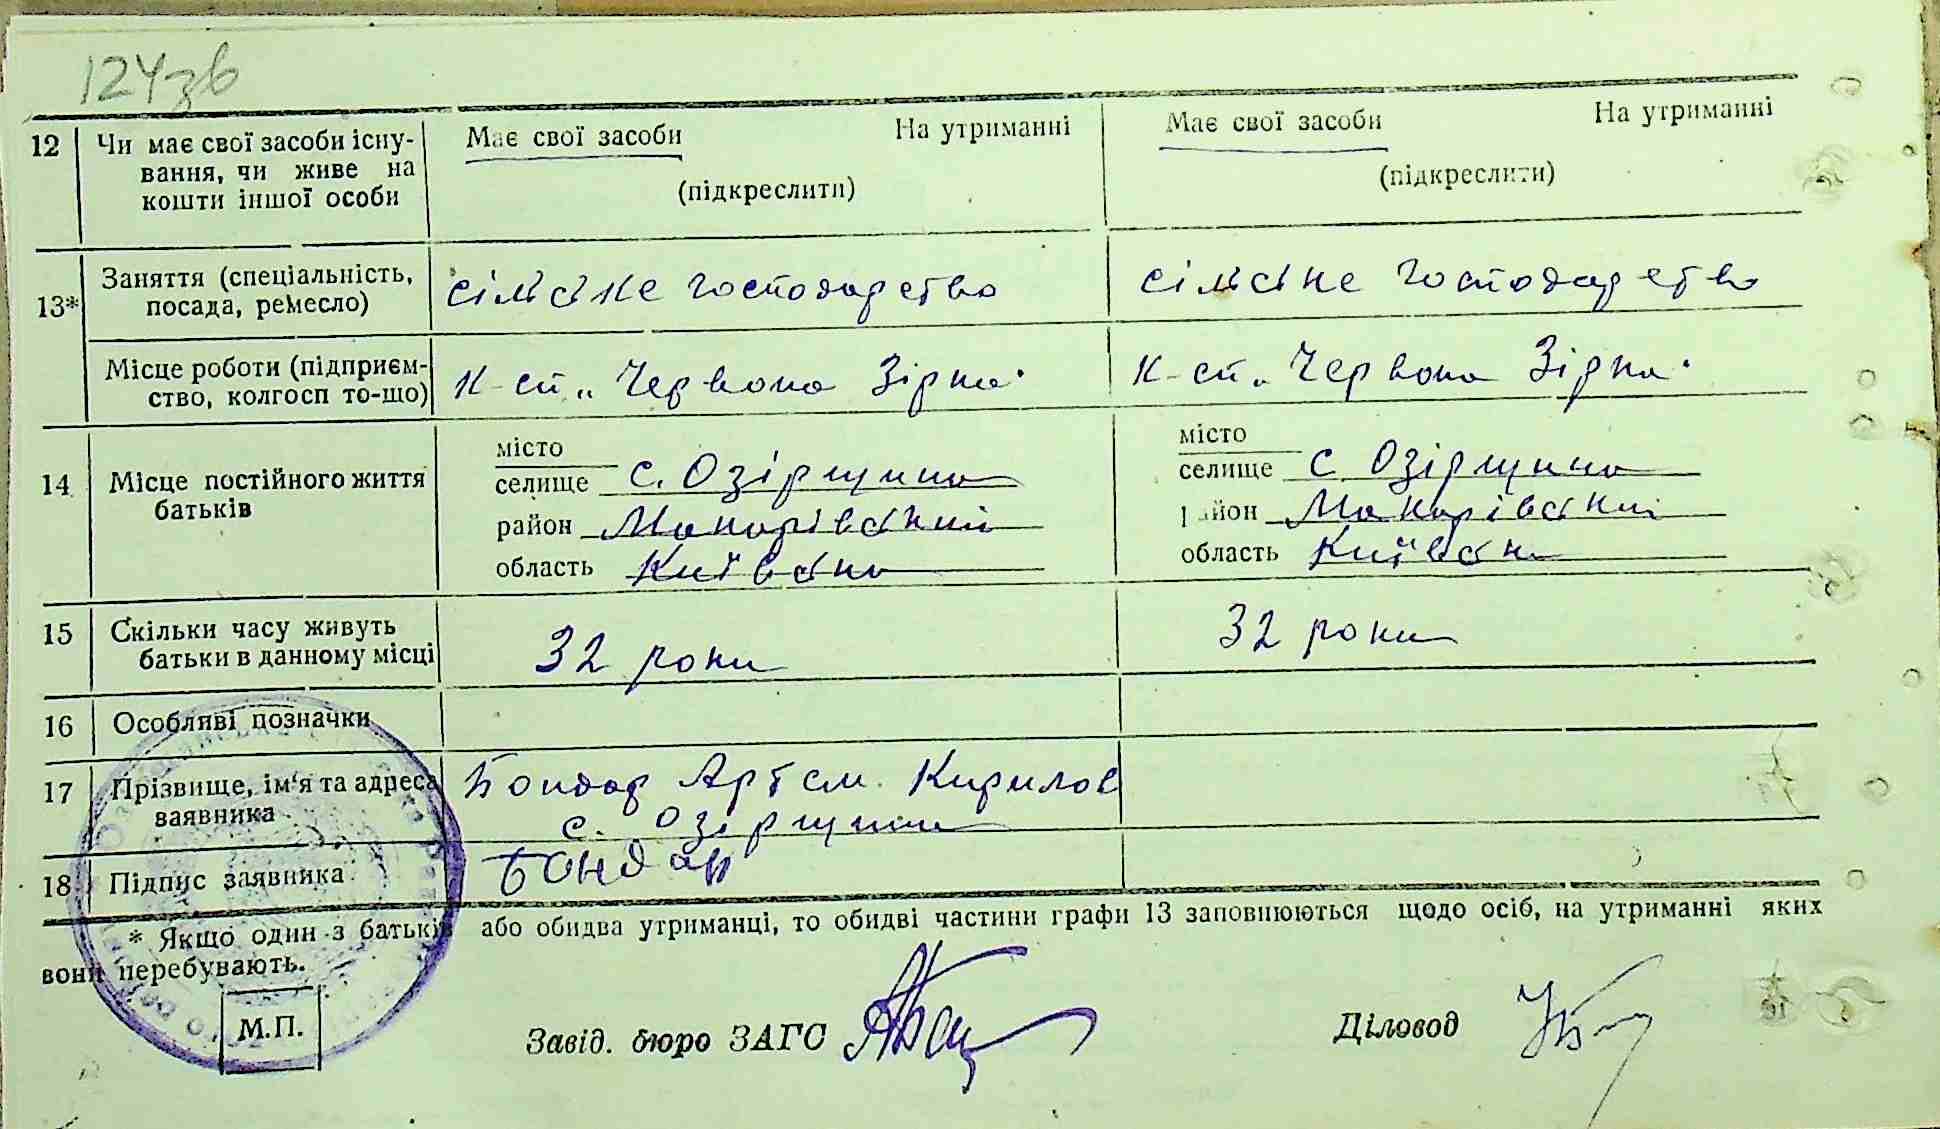 124зв
12 Чи має свої засоби існу- Має свої засоби На утриманні Має свої засоби На утриманні
вання, чи живе на (підкреслити) (підкреслити)
кошти іншої особи
13* Заняття (спеціальність, сільське господарство сільське господарство
посада, ремесло)
Місце роботи (підприєм- К-сп „Червона Зірка" К-сп „Червона Зірка"
ство, колгосп то-що)
14 Місце постійного життя місто місто
батьків селище с. Озірщина селище с Озірщина
район Макарівський район Макарівський
область Київська область Київська
15 Скільки часу живуть 32 роки 32 роки
батьки в данному місці
16 Особливі позначки
17 Прізвище, ім'я та адреса Бондар Артем. Кирилов
заявника с. Озірщина
18 Підпис заявника Бондар
* Якщо один з батьків або обидва утриманці, то обидві частини графи 13 заповнюються щодо осіб, на утриманні яких
вони перебувають.
М.П. Завід. бюро ЗАГС Діловод